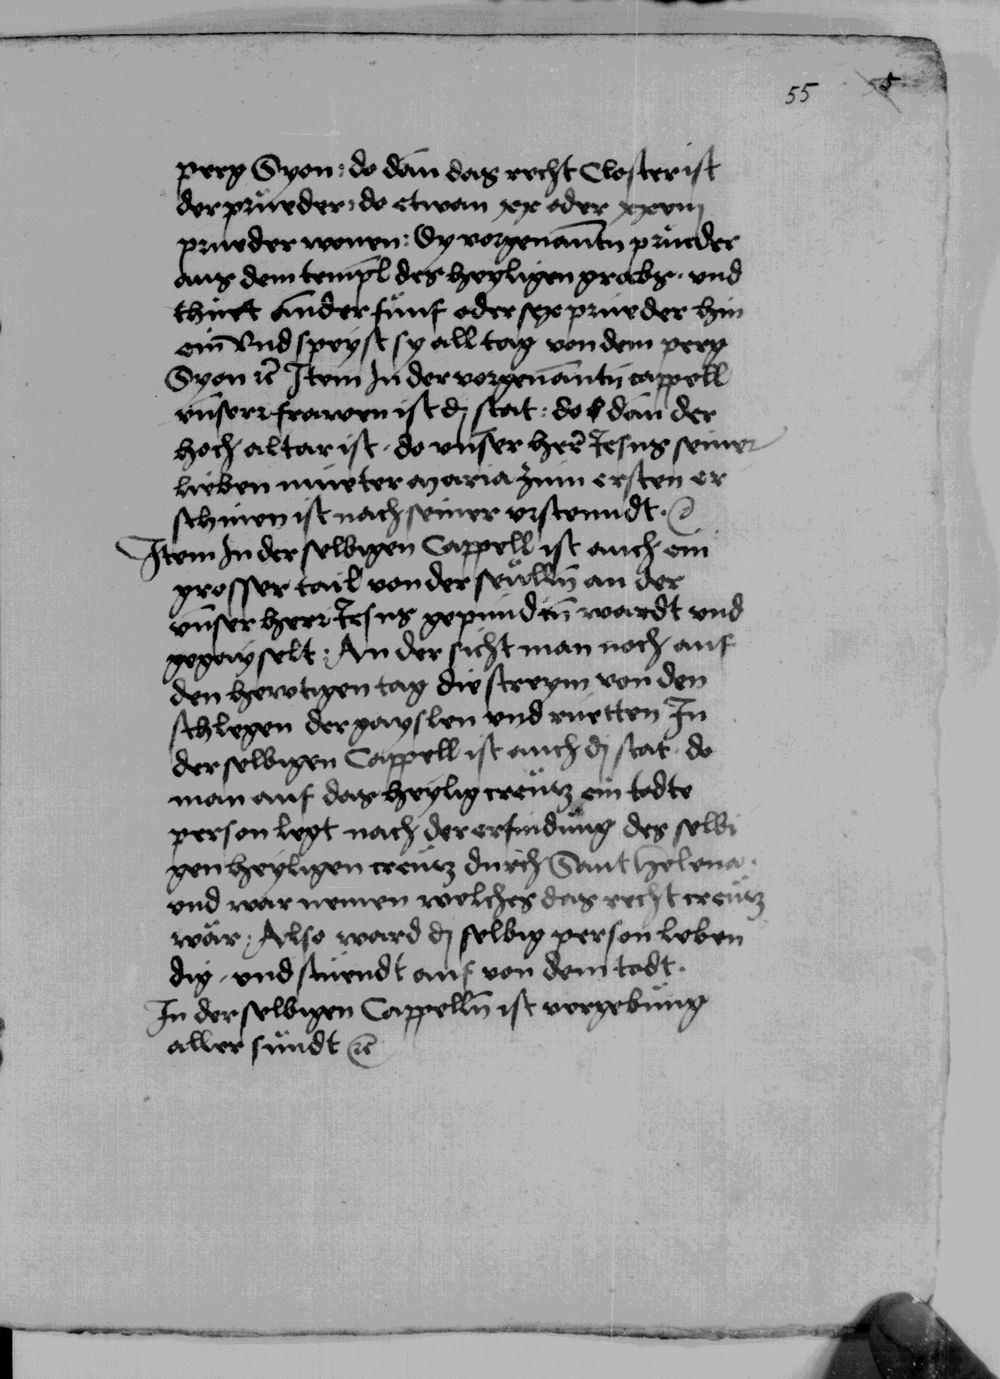 55
perg Syon: do dan das recht Closter ist
der prueder: do etwan xx oder xxviii
prueder wonen: Dy vorgenantn prueder
aus dem templ des heyligen grabs. und
thuet ander fünf oder sex prueder hin
ein Und speyst sy all tag von dem perg
Syon ꝛc Item In der vorgenantn cappell
unserr frawen ist dy stat: do dan der
hoch altar ist. do unser herr Jesus seiner
lieben mueter maria zum ersten er
schinen ist nach seiner urstenndt.
Item In der selbigen Cappell ist auch ein
grosser tail von der sewlln an der
unser herr Jesus gepunden wardt und
gegayselt: An der sicht man noch auf
den hewtigen tag die streym von den
schlegen der gayslen und ruetten In
der selbigen Cappell ist auch dy stat. do
man auf das heylig creütz ein todte
person legt nach der erfindung des selbi
gen heyligen creütz durch Sant Helena.
und war nemen welches das recht creütz
wär: Also ward dy selbig person leben
dig. und stuendt auf von dem todt.
In der selbigen Cappelln ist vergebung
aller sündt ꝛc